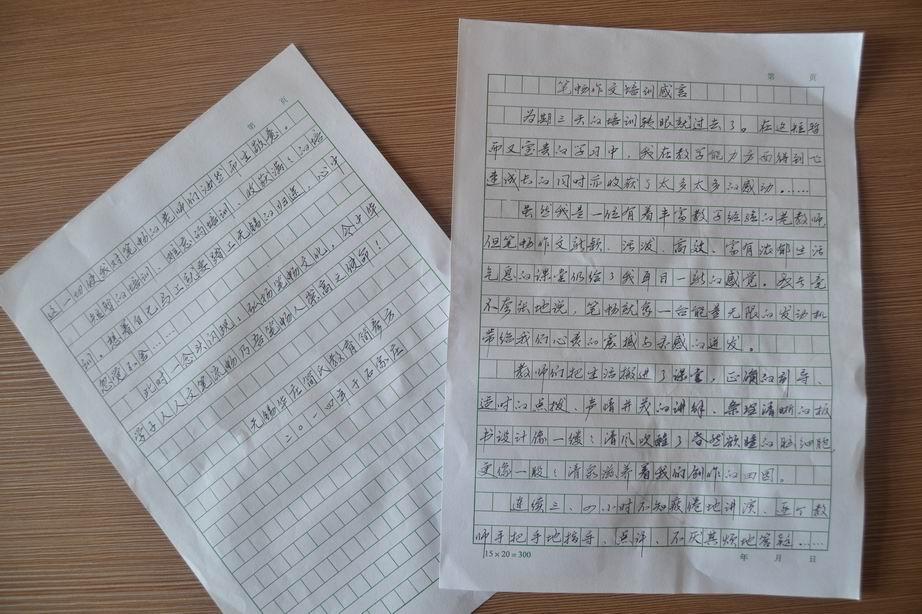 第 页
笔畅作文培训感言
为期三天的培训转眼就过去了。在这短暂
而又宝贵的学习中,我在教学能力方面得到飞
速成长的同时亦收获了太多太多的感动……
虽然我是一位有着丰富教学经验的老教师,
但笔畅作文新颖、活泼、高效、富有浓郁生活
气息的课堂仍给了我耳目一新的感觉。我毫
不夸张地说,笔畅就象一台能量无限的发动机
带给我们心灵的震撼与灵感的迸发。
教师们把生活搬进了课堂,正确的引导、
适时的点拨、声情并茂的讲解、条理清晰的板
书设计像一缕缕清风吹醒了昏昏欲睡的脑细胞,
更像一股股清泉滋养着我的创作的田园。
连续三、四小时不知疲倦地讲演、逐个教
师手把手地指导、点评、不厌其烦地答疑……
15×20=300
年 月 日
第 页
这一切使我对笔畅的老师们油然而生敬意。
短暂的培训、难忘的培训、收获满满的培
训。想着自己马上就要踏上无锡的归途,心中
忽觉不舍……
此时一念头闪现:弘扬笔畅文化,令中华
学子人人文笔流畅乃是笔畅人崇高之使命!
无锡华庄简氏教育简彦方
二〇一四年于石家庄